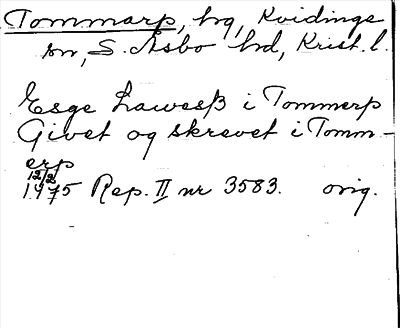 Tommarp, by, Kvidinge
sn, S. Åsbo hd, Krist. l.
Esge Lawesß i Tommerp
Givet og skrevet i Tomm-
erp
12/2
1475 Rep. II nr 3583. orig.